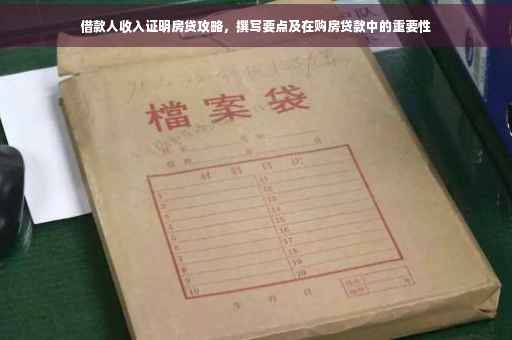 借款人收入证明房贷攻略，撰写要点及在购房贷款中的重要性
檔案袋
材料目次
1 11
2 12
3 13
4 14
5 15
6 16
7 17
8 18
9 19
10 20
年 月 日